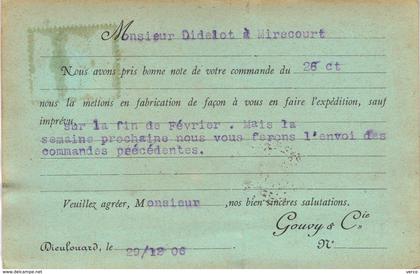 Monsieur Didelot à Mirecourt
Nous avons pris bonne note de votre commande du 26 ct
nous la mettons en fabrication de façon à vous en faire l'expédition, sauf
imprévu, sur la fin de Février . Mais la
semaine prochaine nous vous ferons l'envoi des
commandes précédentes.
Veuillez agréer, Monsieur , nos bien sincères salutations.
Gouvy & Cie
Dieulouard, le 29/12 06 No